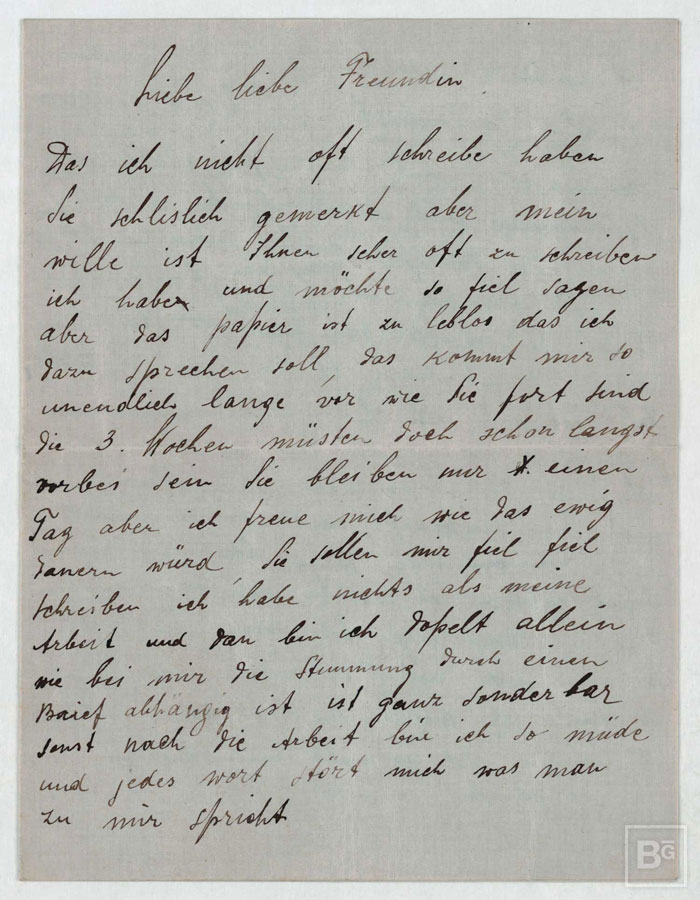 Liebe liebe Freundin
Das ich nicht oft schreibe haben
Sie schlislich gemerkt aber mein
wille ist Ihnen seher oft zu schreiben
ich habe und möchte so fiel sagen
aber das papier ist zu leblos das ich
dazu sprechen soll, das kommt mir so
unendlich lange vor wie Sie fort sind
die 3. Wochen müsten doch schon langst
vorbei sein Sie bleiben nur einen
Tag aber ich freue mich wie das ewig
dauern würd, Sie sollen mir fiel fiel
schreiben ich habe nichts als meine
Arbeit und dan bin ich dopelt allein
wie bei mir die Stimmung durch einen
Brief abhängig ist ist ganz sonderbar
sonst nach die Arbeit bin ich so müde
und jedes wort stört mich was man
zu mir spricht
BG